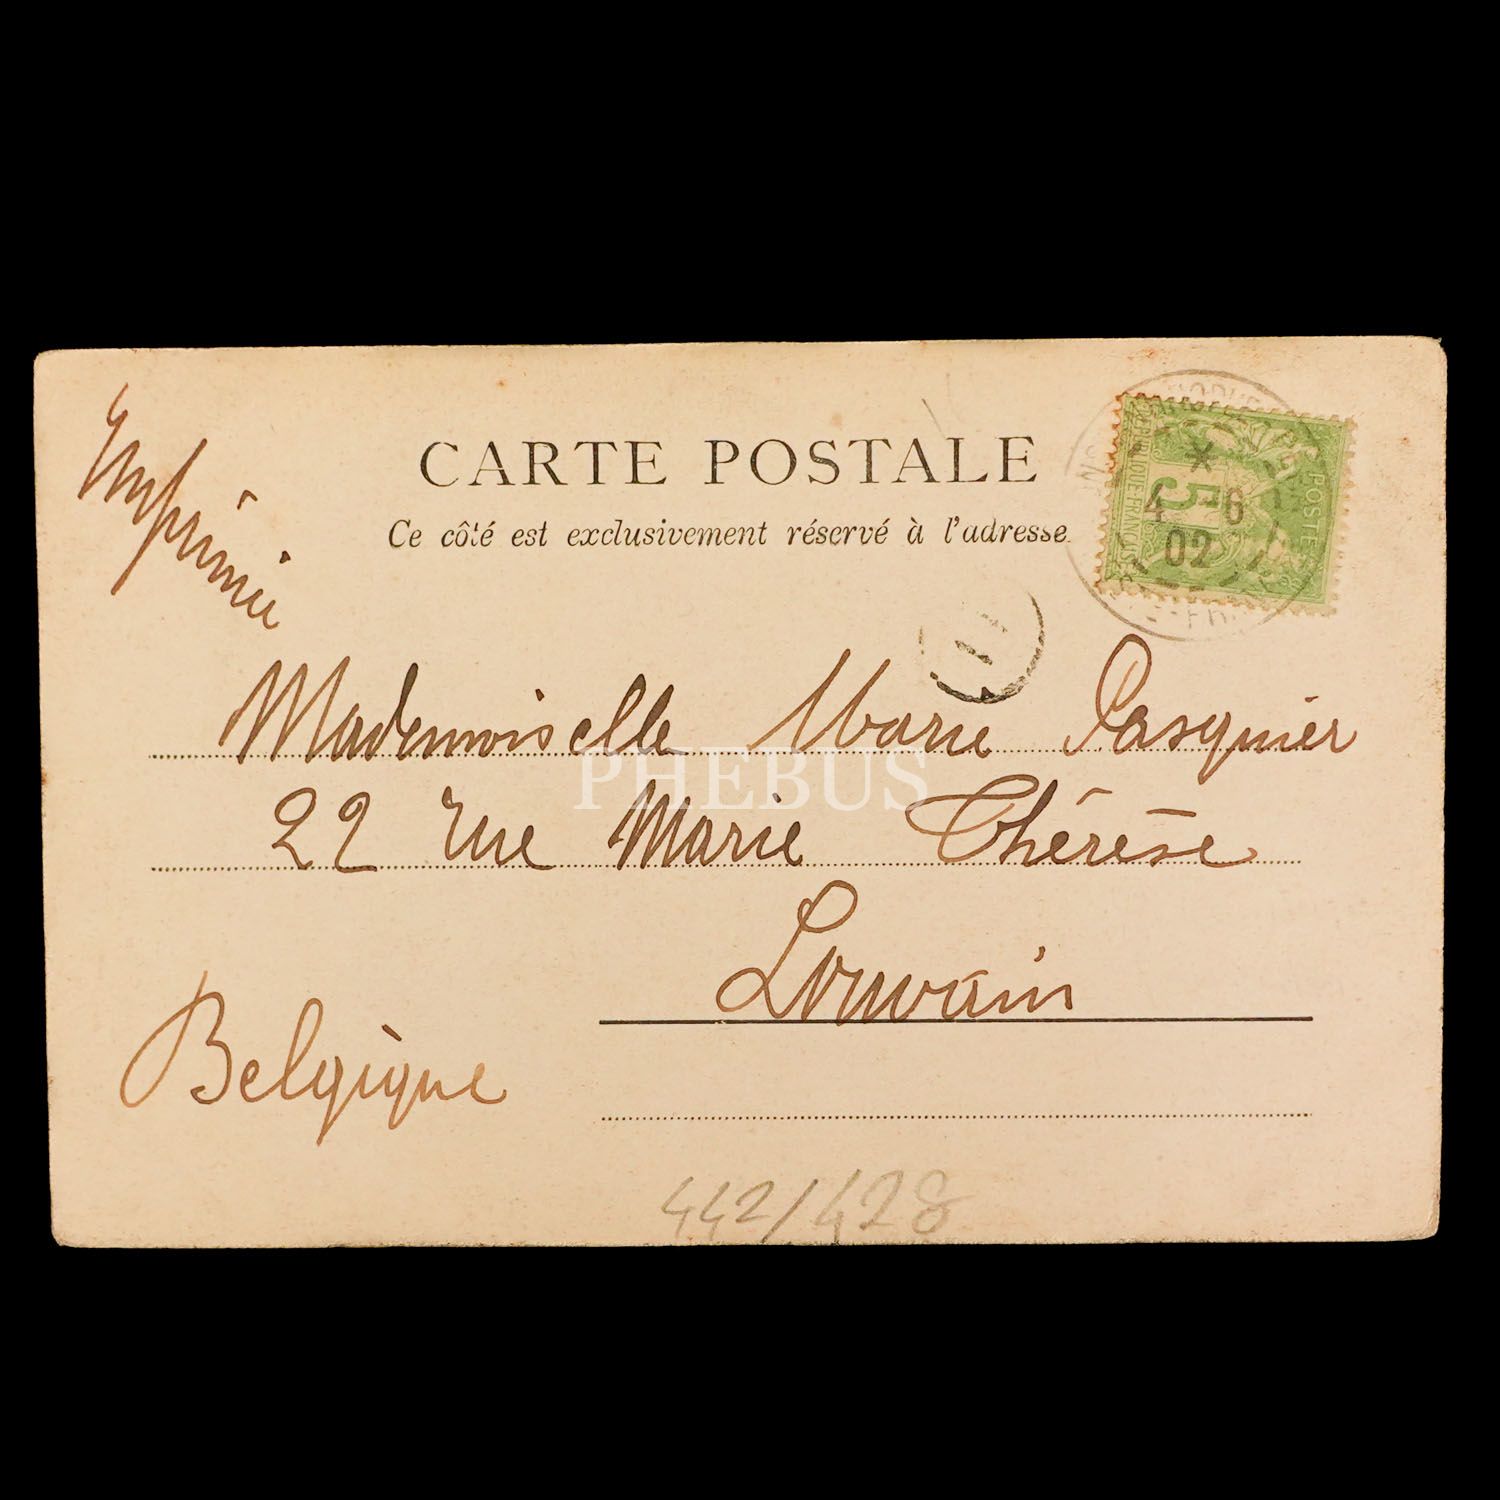 Imprimé
CARTE POSTALE
Ce côté est exclusivement réservé à l'adresse.
POSTES
5
4 -6
02
Mademoiselle Marie Pasquier
PHEBUS
22 rue Marie Thérèse
Louvain
Belgique
442/428